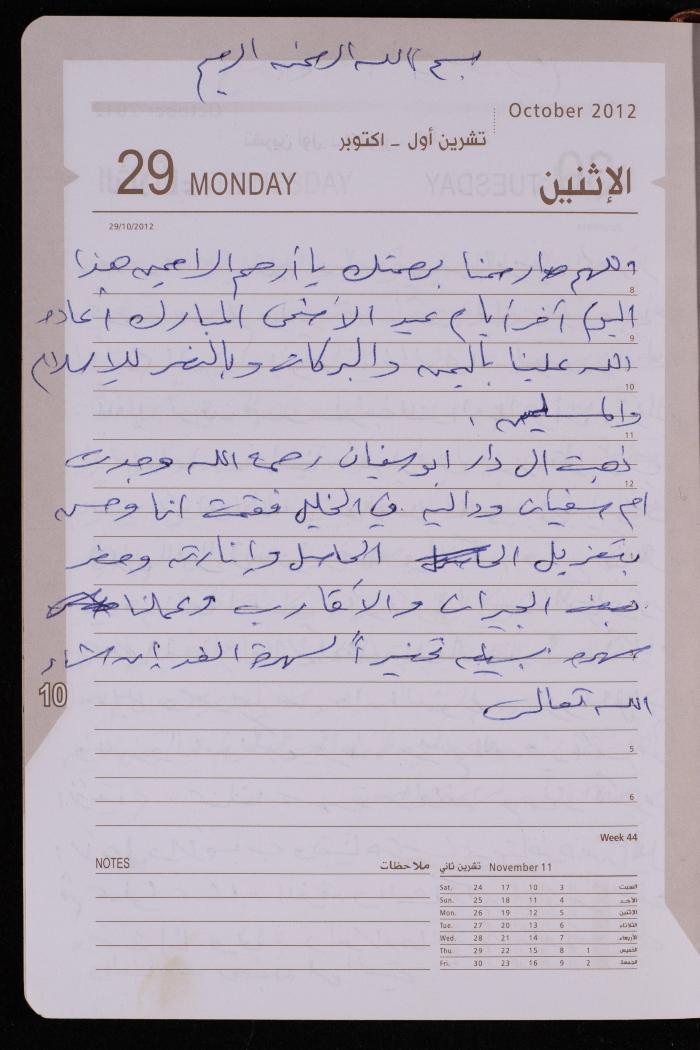 بسم الله الرحمن الرحيم
October 2012
تشرين أول - اكتوبر
29 MONDAY الإثنين
29/10/2012
اللهم ارحمنا برحمتك يا أرحم الراحمين هذا
8
اليوم آخر أيام عيد الأضحى المبارك أعاده
9
الله علينا باليمن والبركات وبالنصر للإسلام
10
والمسلمين .
11
ذهبت الى دار ابو سفيان رحمه الله وجدت
12
ام سفيان وداليه في الخليل فقمت انا وحسن
بتعزيل الحاصل وإنارته وحضر
بعض الجيران والأقارب وعملنا
سهره بسيطه تحضيراً لسهرة الغد إن شاء
10
الله تعالى
5
6
Week 44
NOTES ملاحظات
November 11 تشرين ثاني
Sat. 24 17 10 3 السبت
Sun. 25 18 11 4 الأحد
Mon. 26 19 12 5 الإثنين
Tue. 27 20 13 6 الثلاثاء
Wed. 28 21 14 7 الأربعاء
Thu. 29 22 15 8 1 الخميس
Fri. 30 23 16 9 2 الجمعة